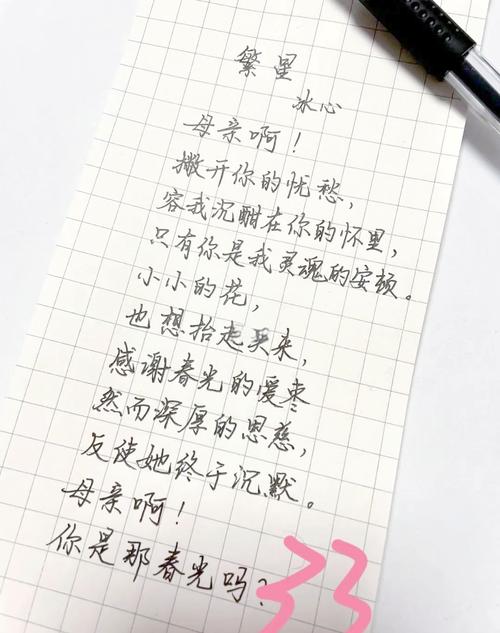 繁星
冰心
母亲啊！
撇开你的忧愁，
容我沉酣在你的怀里，
只有你是我灵魂的安顿。
小小的花，
也想抬起头来，
感谢春光的爱枣
然而深厚的恩慈，
反使她终于沉默。
母亲啊！
你是那春光吗？
33